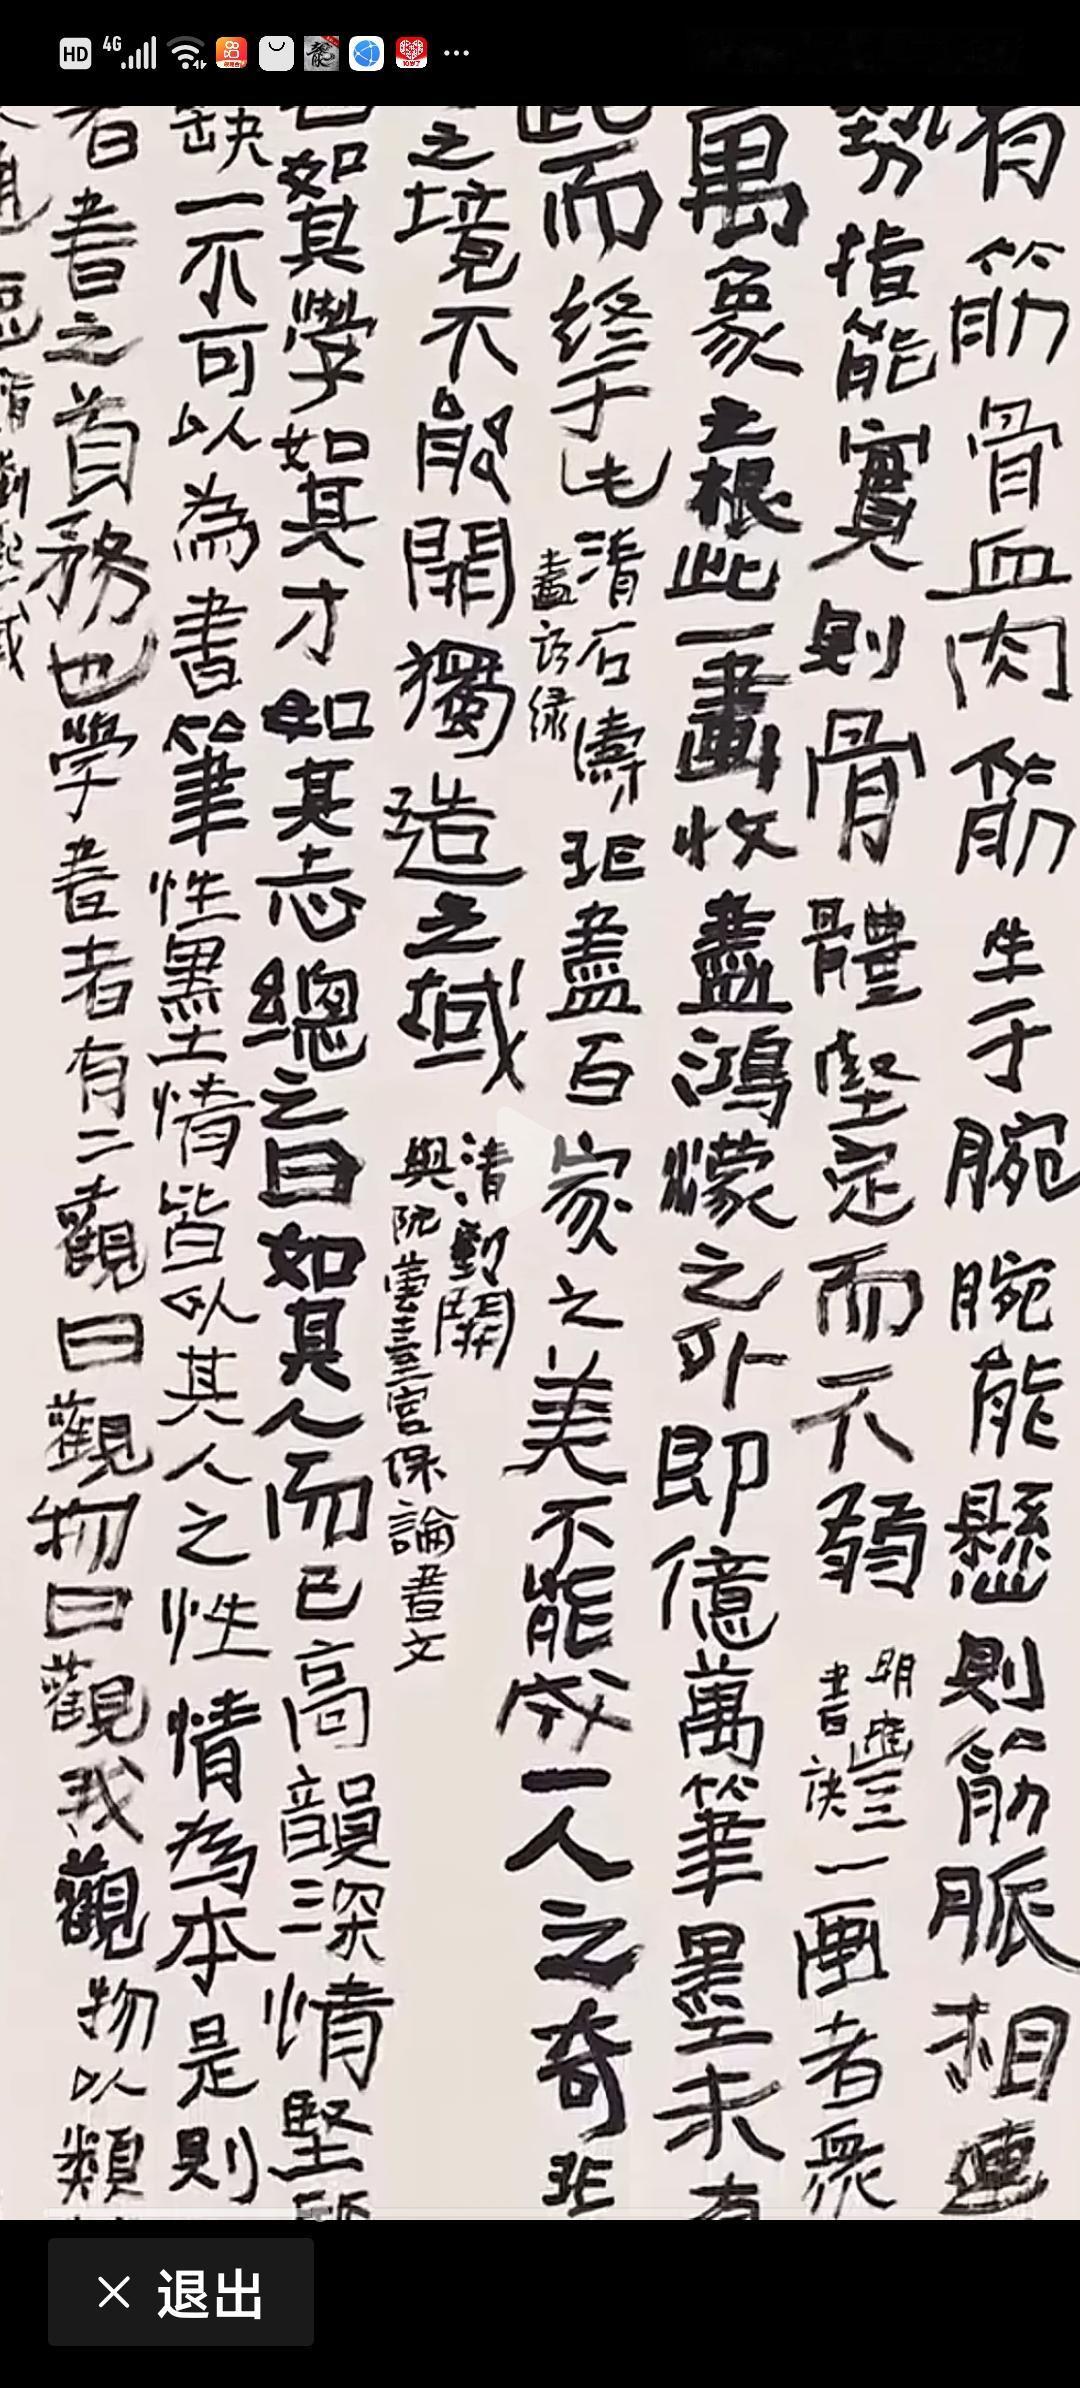 HD 4G
有筋骨血肉筋生于腕腕能懸則筋脈相連
勢指能實則骨體堅定而不弱
明豐
書訣
一畫者眾
萬象之根此一畫收盡鴻濛之外即億萬筆墨未有
此而終于也
清石濤
畫語錄
非盡百家之美不能成一人之奇非
之境不能開獨造之域
清劉開
與阮芸臺宮保論書文
也如其學如其才如其志總之曰如其人而已高韻深情堅
缺一不可以為書筆性墨情皆以其人之性情為本是則
者書之首務也學書者有二觀曰觀物曰觀我觀物以類
清劉熙載
退出